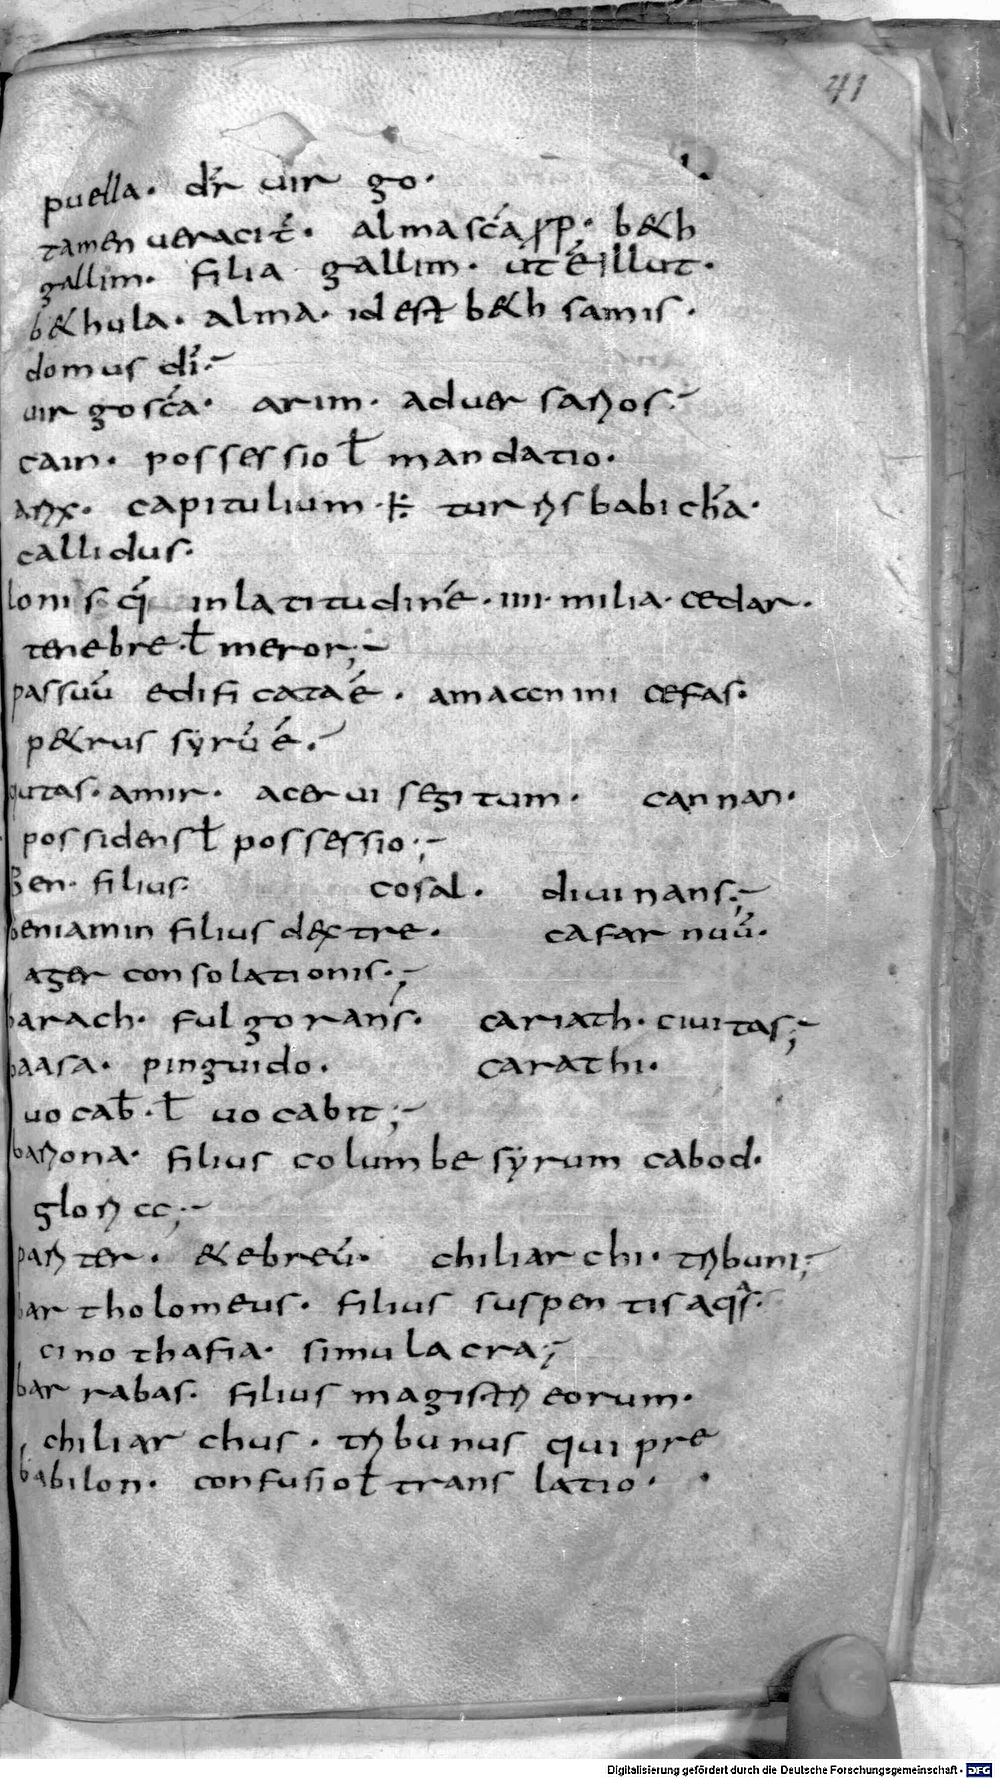 41
puella· dr̄ uir go·
tamen ueracit̄· almasc̄a ꝓp· beth
gallim· filia gallim· ut ē illut·
bethula· alma· id est beth samis·
domus dī;
uirgo sc̄a· arim· aduersarios;
cain· possessio ł mandatio·
arx· capitulium· turris babich̄a·
callidus·
lonis q̄ in latitudinē· iiii· milia· cedar·
tenebre· ł meror;
passuū edificata ē· amaccnini cefas·
petrus syrū ē·
uitas· amir· acerui segitum· cannan·
possidens ł possessio;
Ben· filius· cosal· diuinans;
beniamin filius dextre· cafar nuū·
ager consolationis;
barach· fulgorans· cariath· ciuitas;
baasa· pinguido· carathi·
uocab̄· ł uocabit;
bariona· filius columbe syrum cabod·
gloricc;
pariter· et ebreū· chiliarchi· tribuni;
bartholomeus· filius suspentis aqs·
cinothafia· simulacra;
barrabas· filius magistri eorum·
chiliarchus· tribunus qui pre
babilon· confusio ł translatio·
Digitalisierung gefördert durch die Deutsche Forschungsgemeinschaft - DFG